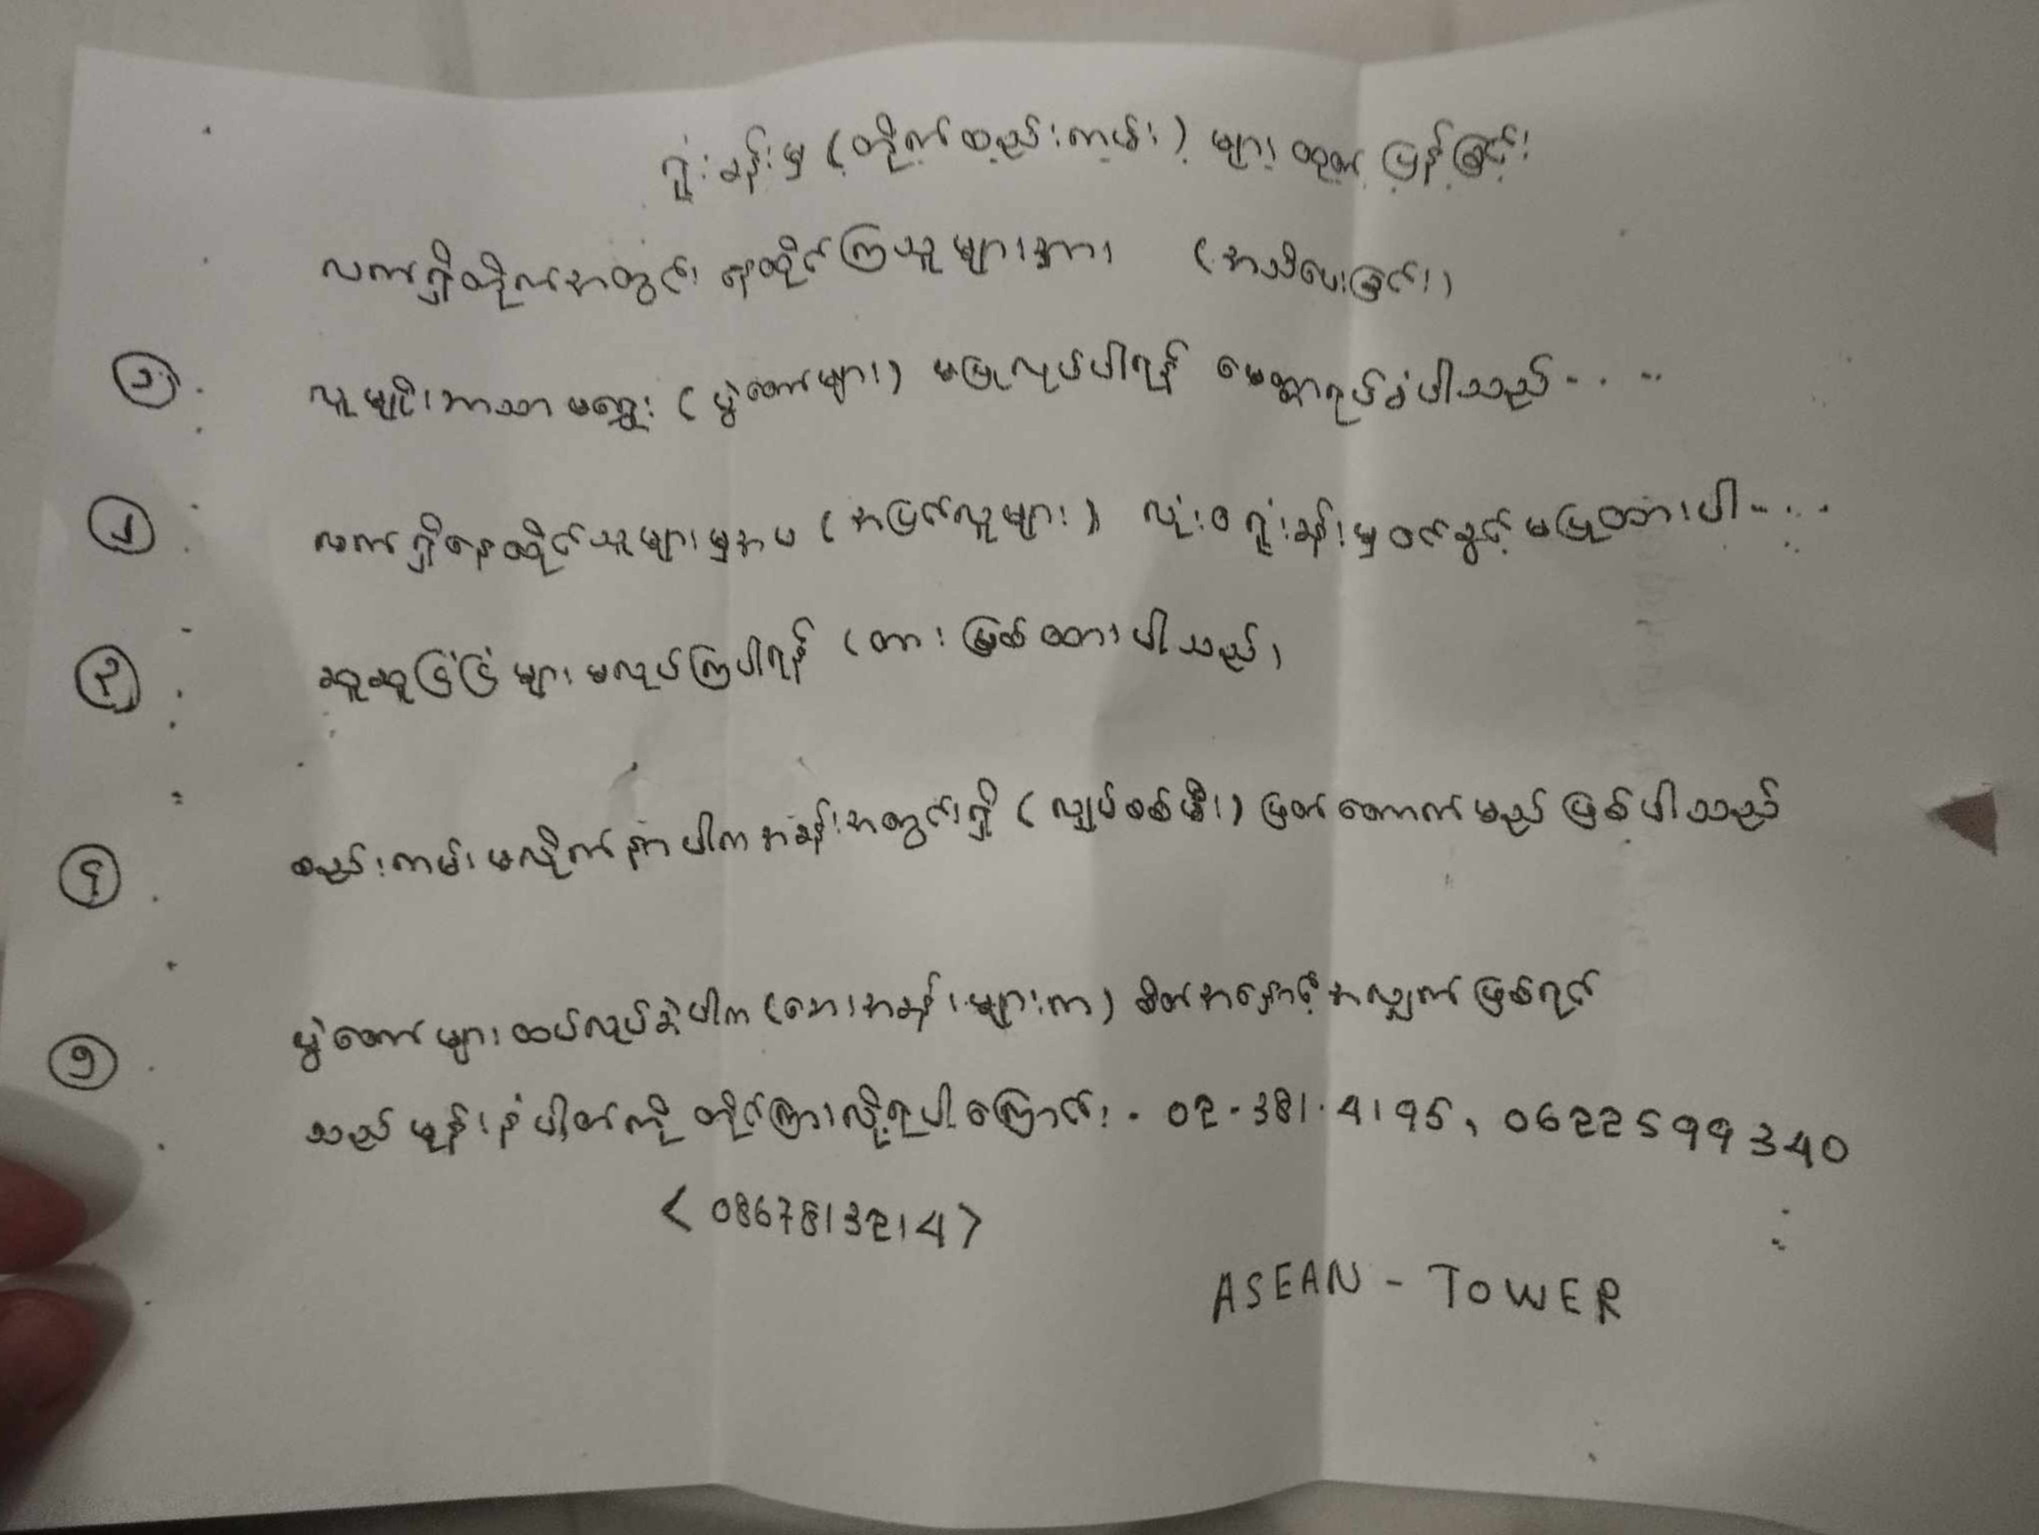 ရုံးခန်းမှ (တိုက်စည်းကမ်း) များ ထုတ်ပြန်ခြင်း
လက်ရှိတိုက်အတွင်း နေထိုင်ကြသူများအား (အသိပေးခြင်း)
၁ လူမျိုးဘာသာမရွေး (ပွဲတော်များ) မပြုလုပ်ပါရန် မေတ္တာရပ်ခံပါသည်....
၂ လက်ရှိနေထိုင်သူများမှအပ (အပြင်လူများ) လုံးဝရုံးခန်းမှဝင်ခွင့်မပြုထားပါ....
၃ ဆူဆူငြံငြံများ မလုပ်ကြပါရန် (တားမြစ်ထားပါသည်)
၄ စည်းကမ်းမလိုက်နာပါကအခန်းအတွင်းရှိ (လျှပ်စစ်မီး) ဖြတ်တောက်မည်ဖြစ်ပါသည်
၅ ပွဲတော်များထပ်လုပ်ခဲ့ပါက (ဘေးအခန်းများက) စိတ်အနှောင့်အယှက်ဖြစ်ရင်
သည်ဖုန်းနံပါတ်ကို တိုင်ကြားလို့ရပါကြောင်း. 02-381.4195, 0622599340
<0867813214>
ASEAN - TOWER